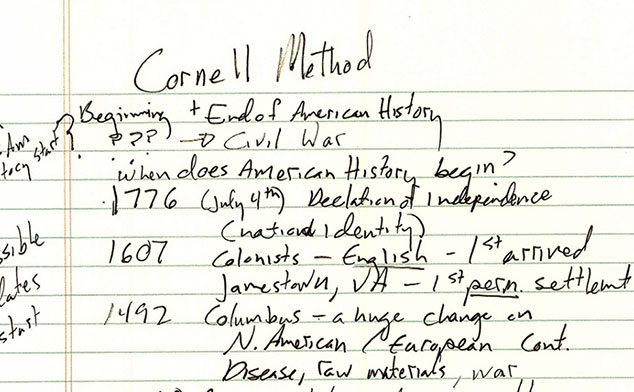 Cornell Method
Beginning + End of American History
Am
??? → Civil War
tory start
When does American History begin?
1776 (July 4th) Declation of Independence
(national Identity)
sible
1607 Colonists - English - 1st arrived
Jamestown, VA - 1st perm. settlemt
lates
1492 Columbus - a huge change on
start
N. American / European Cont.
Disease, raw materials, war